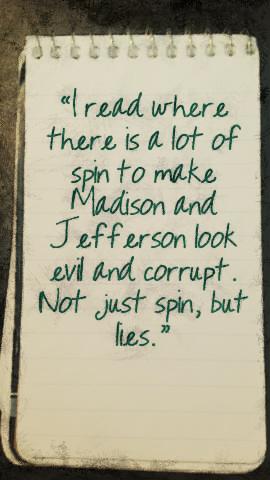 “I read where
there is a lot of
spin to make
Madison and
Jefferson look
evil and corrupt.
Not just spin, but
lies.”